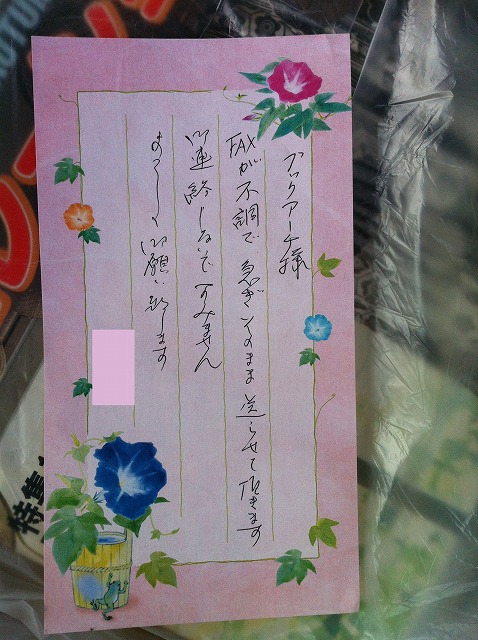 ブックアーチ様
FAXが不調で、急ぎそのまま送らせて頂きます
御連絡しないですみません
よろしく御願い致します
特集